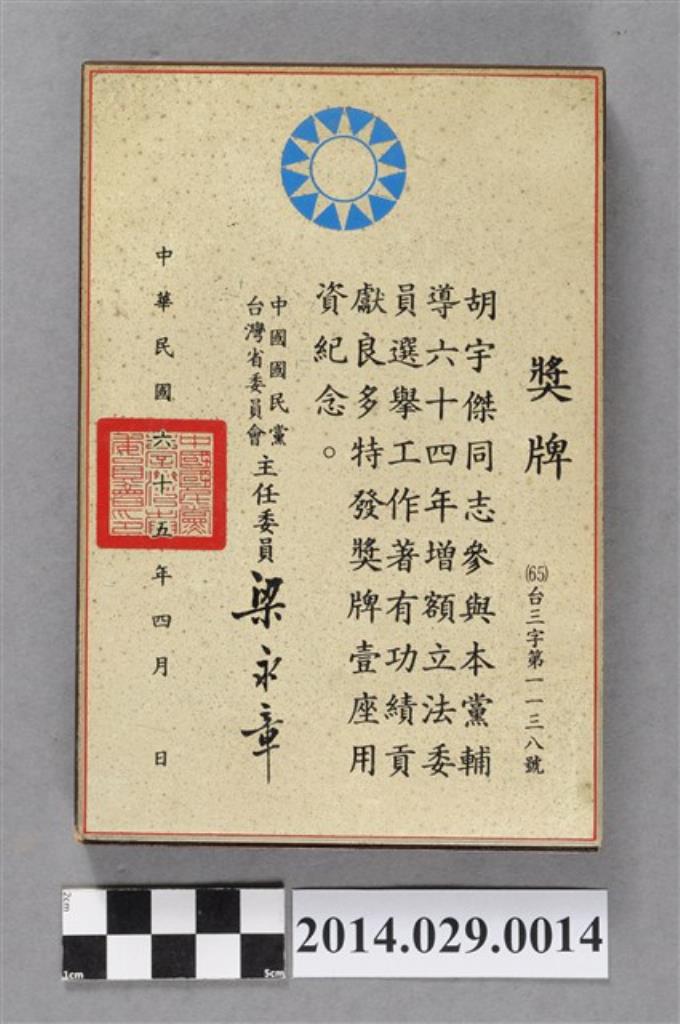 獎牌
(65)台三字第一一三八號
胡宇傑同志參與本黨輔
導六十四年增額立法委
員選舉工作著有功績貢
獻良多特發獎牌壹座用
資紀念。
中國國民黨
台灣省委員會
主任委員 梁永章
中華民國六十五年四月 日
2cm
1cm
5cm
2014.029.0014